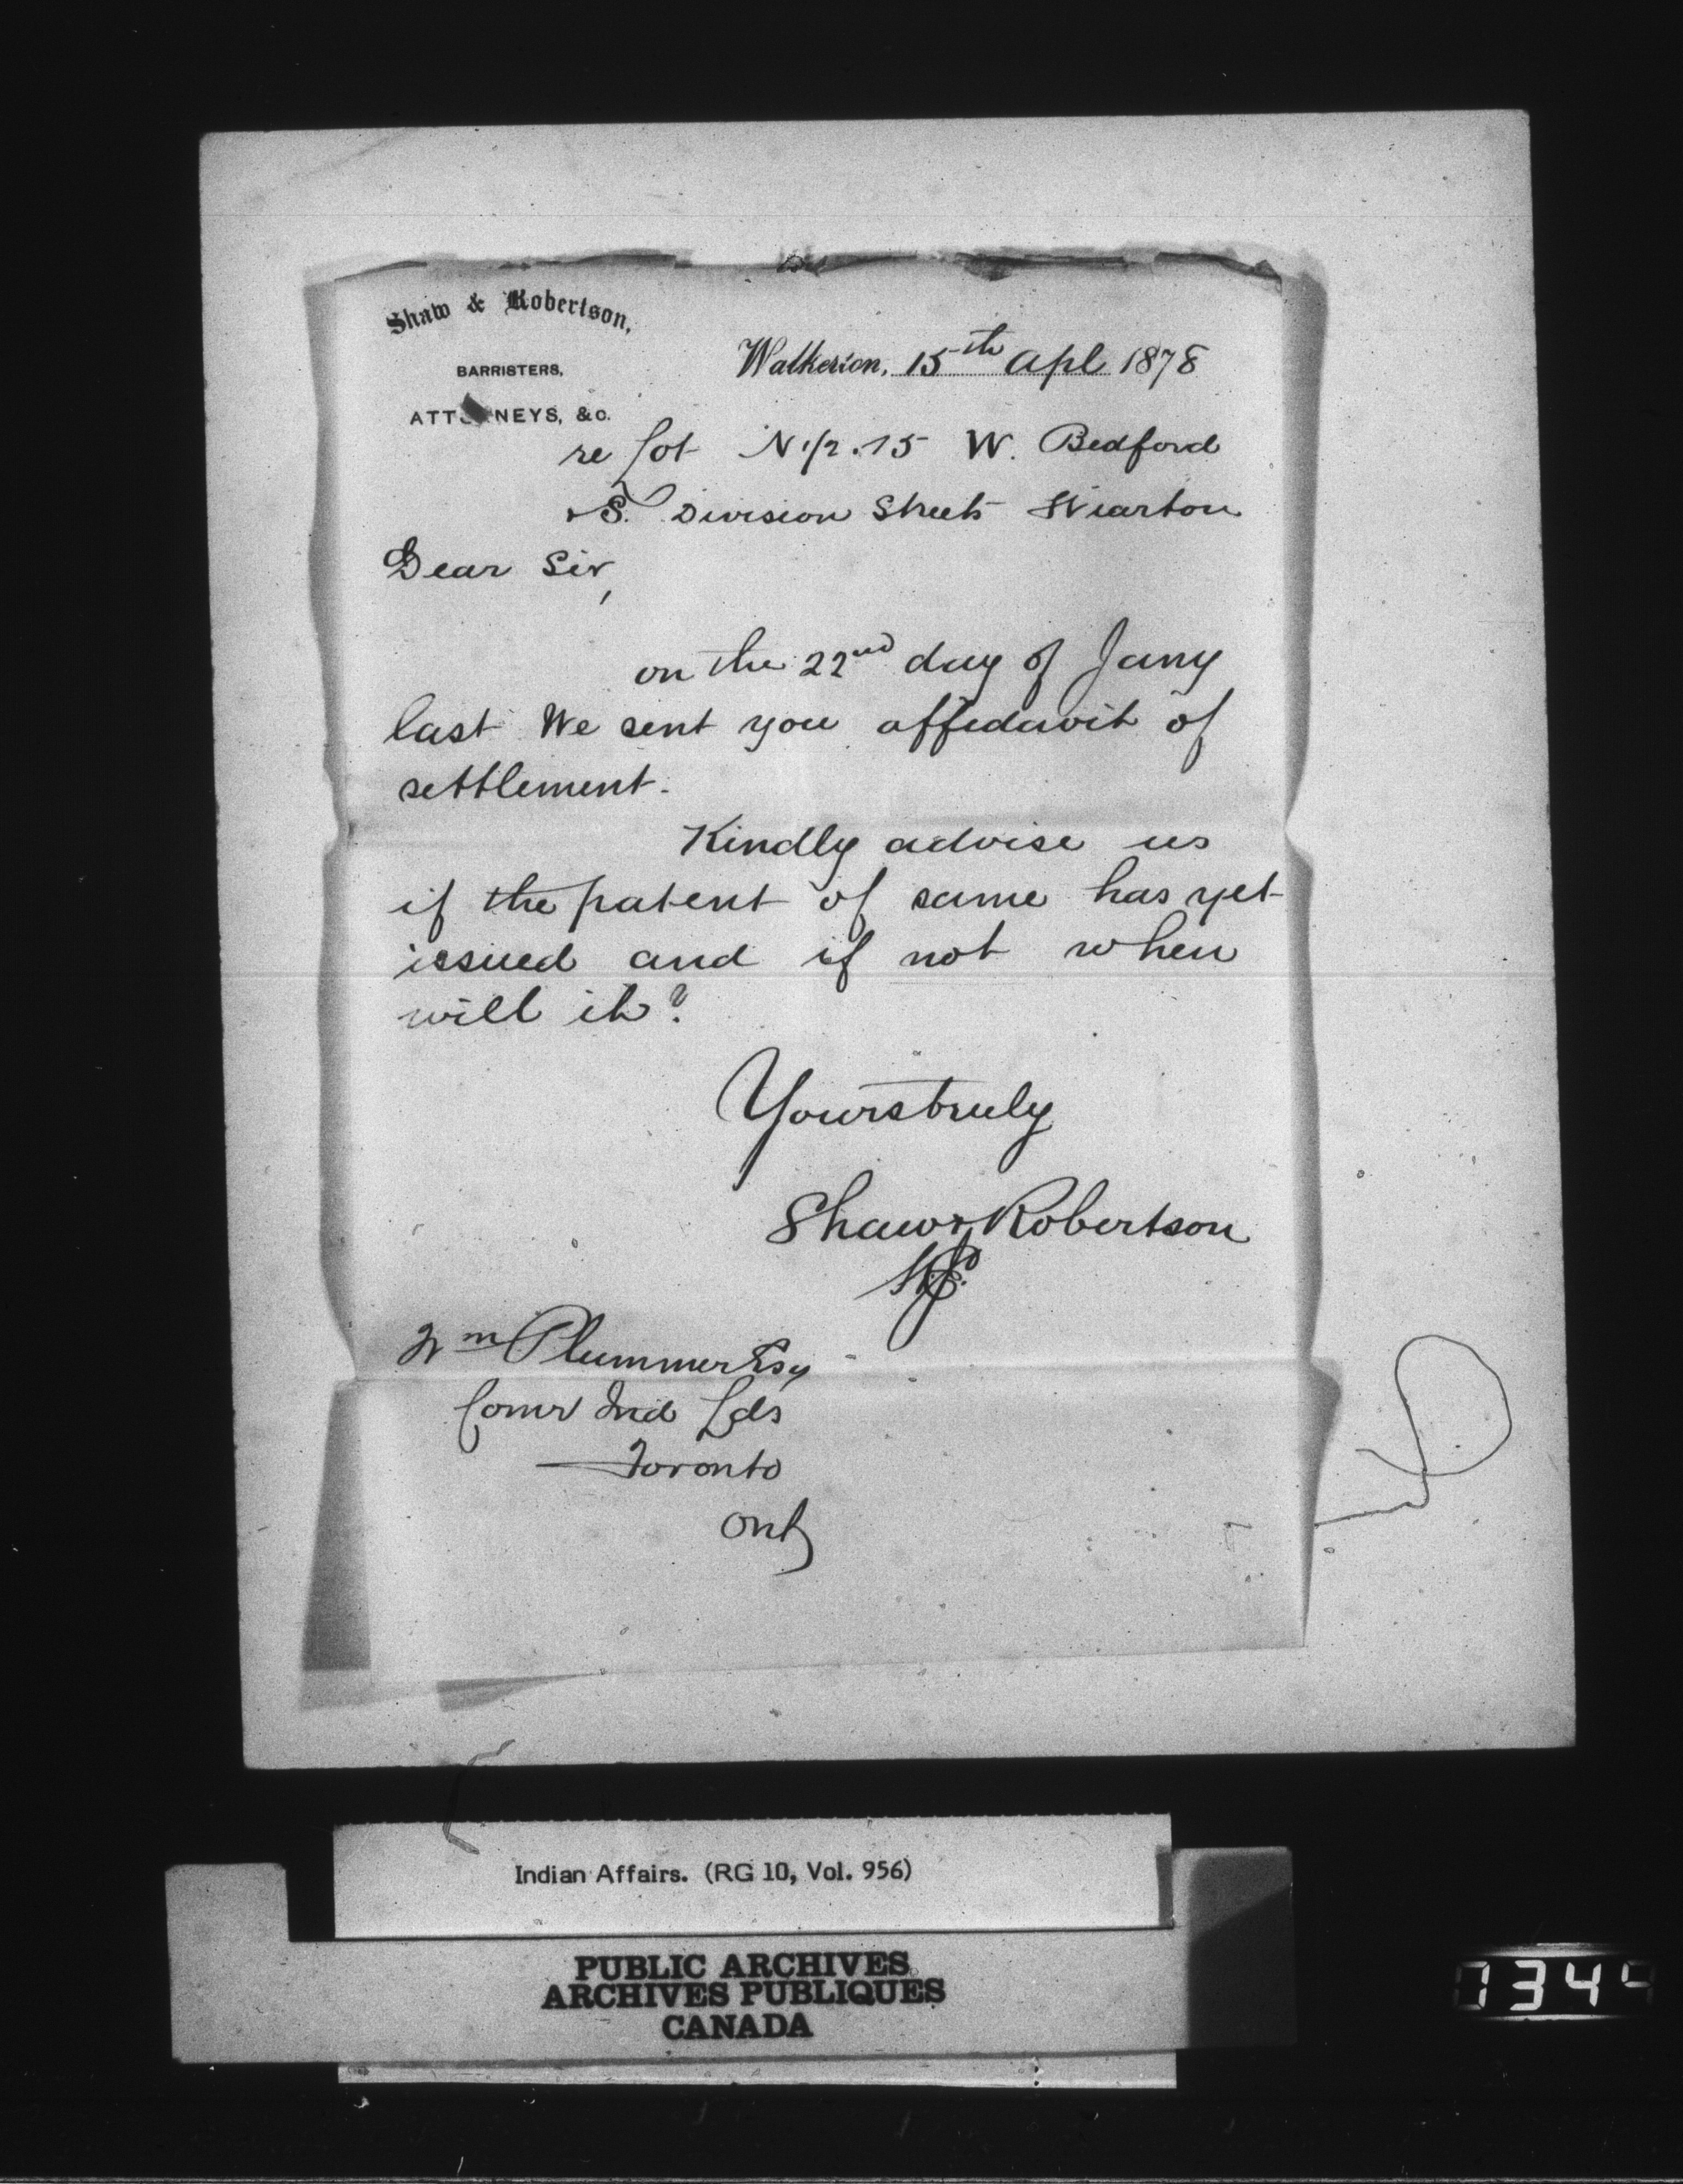 Shaw & Robertson,
BARRISTERS,
ATTORNEYS, &c.
Walkerton, 15th Apl 1878
re Lot N 1/2 .15 W. Bedford
& S. Division Streets Wiarton
Dear Sir,
on the 22nd day of Jany
last We sent you affidavit of
settlement.
Kindly advise us
if the patent of same has yet
issued and if not when
will it?
Yours truly
Shaw & Robertson
Wm Plummer Esq
Comr Ind Lds
Toronto
Ont
Indian Affairs. (RG 10, Vol. 956)
PUBLIC ARCHIVES
ARCHIVES PUBLIQUES
CANADA